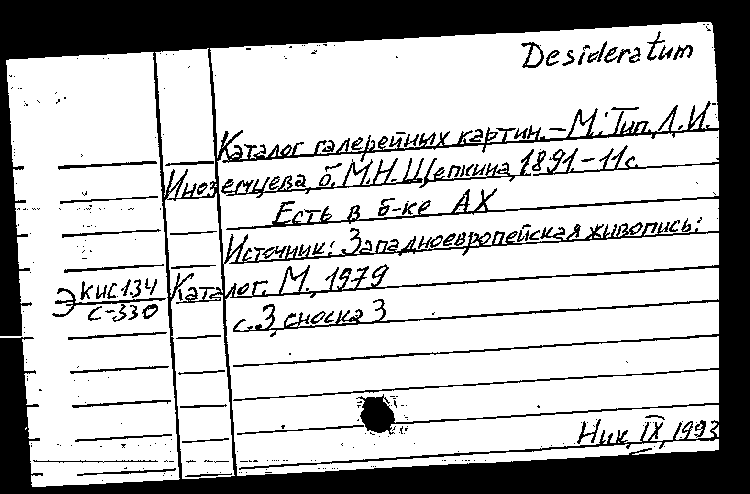 Desideratum
Каталог галерейных картин. – М.: Тип. Л.И.
Иноземцева, б. М.Н. Щепкина, 1891. – 11 с.
Есть в б-ке АХ
Источник: Западноевропейская живопись:
Э кис134 Каталог. М., 1979
с-330 с. 3, сноска 3
Ник, IX, 1993